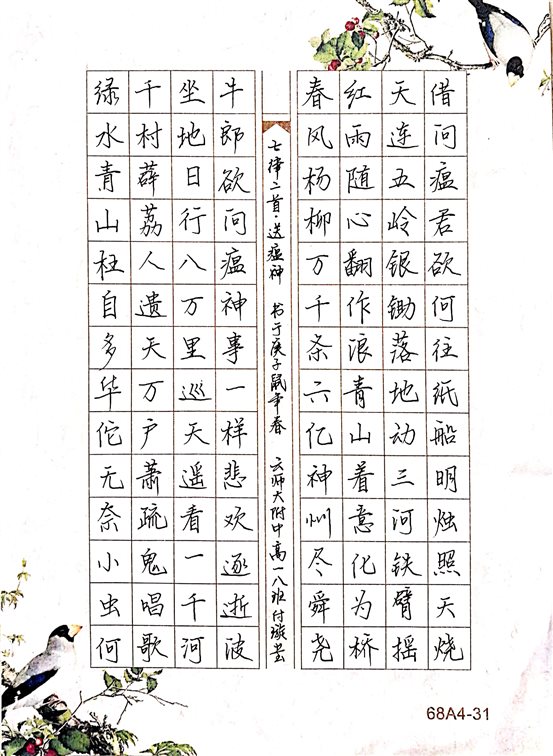 绿水青山枉自多华佗无奈小虫何
千村薜荔人遗天万户萧疏鬼唱歌
坐地日行八万里巡天遥看一千河
牛郎欲问瘟神事一样悲欢逐逝波
七律二首·送瘟神 书于庚子鼠年春 云师大附中高一八班付
春风杨柳万千条六亿神州尽舜尧
红雨随心翻作浪青山着意化为桥
天连五岭银锄落地动三河铁臂摇
借问瘟君欲何往纸船明烛照天烧
68A4-31